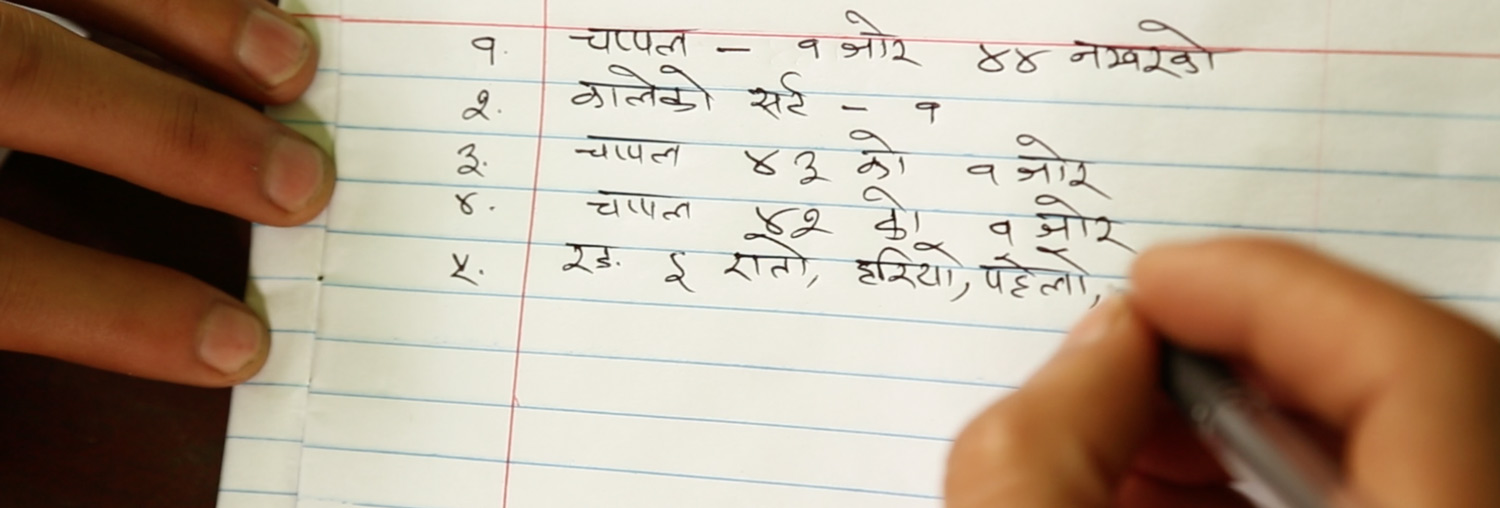 १. चप्पल - १ जोर ४४ नम्बरको
२. कालेको सर्ट - १
३. चप्पल ४३ को १ जोर
४. चप्पल ४२ को १ जोर
५. रङ. ३ रातो, हरियो, पहेँलो,